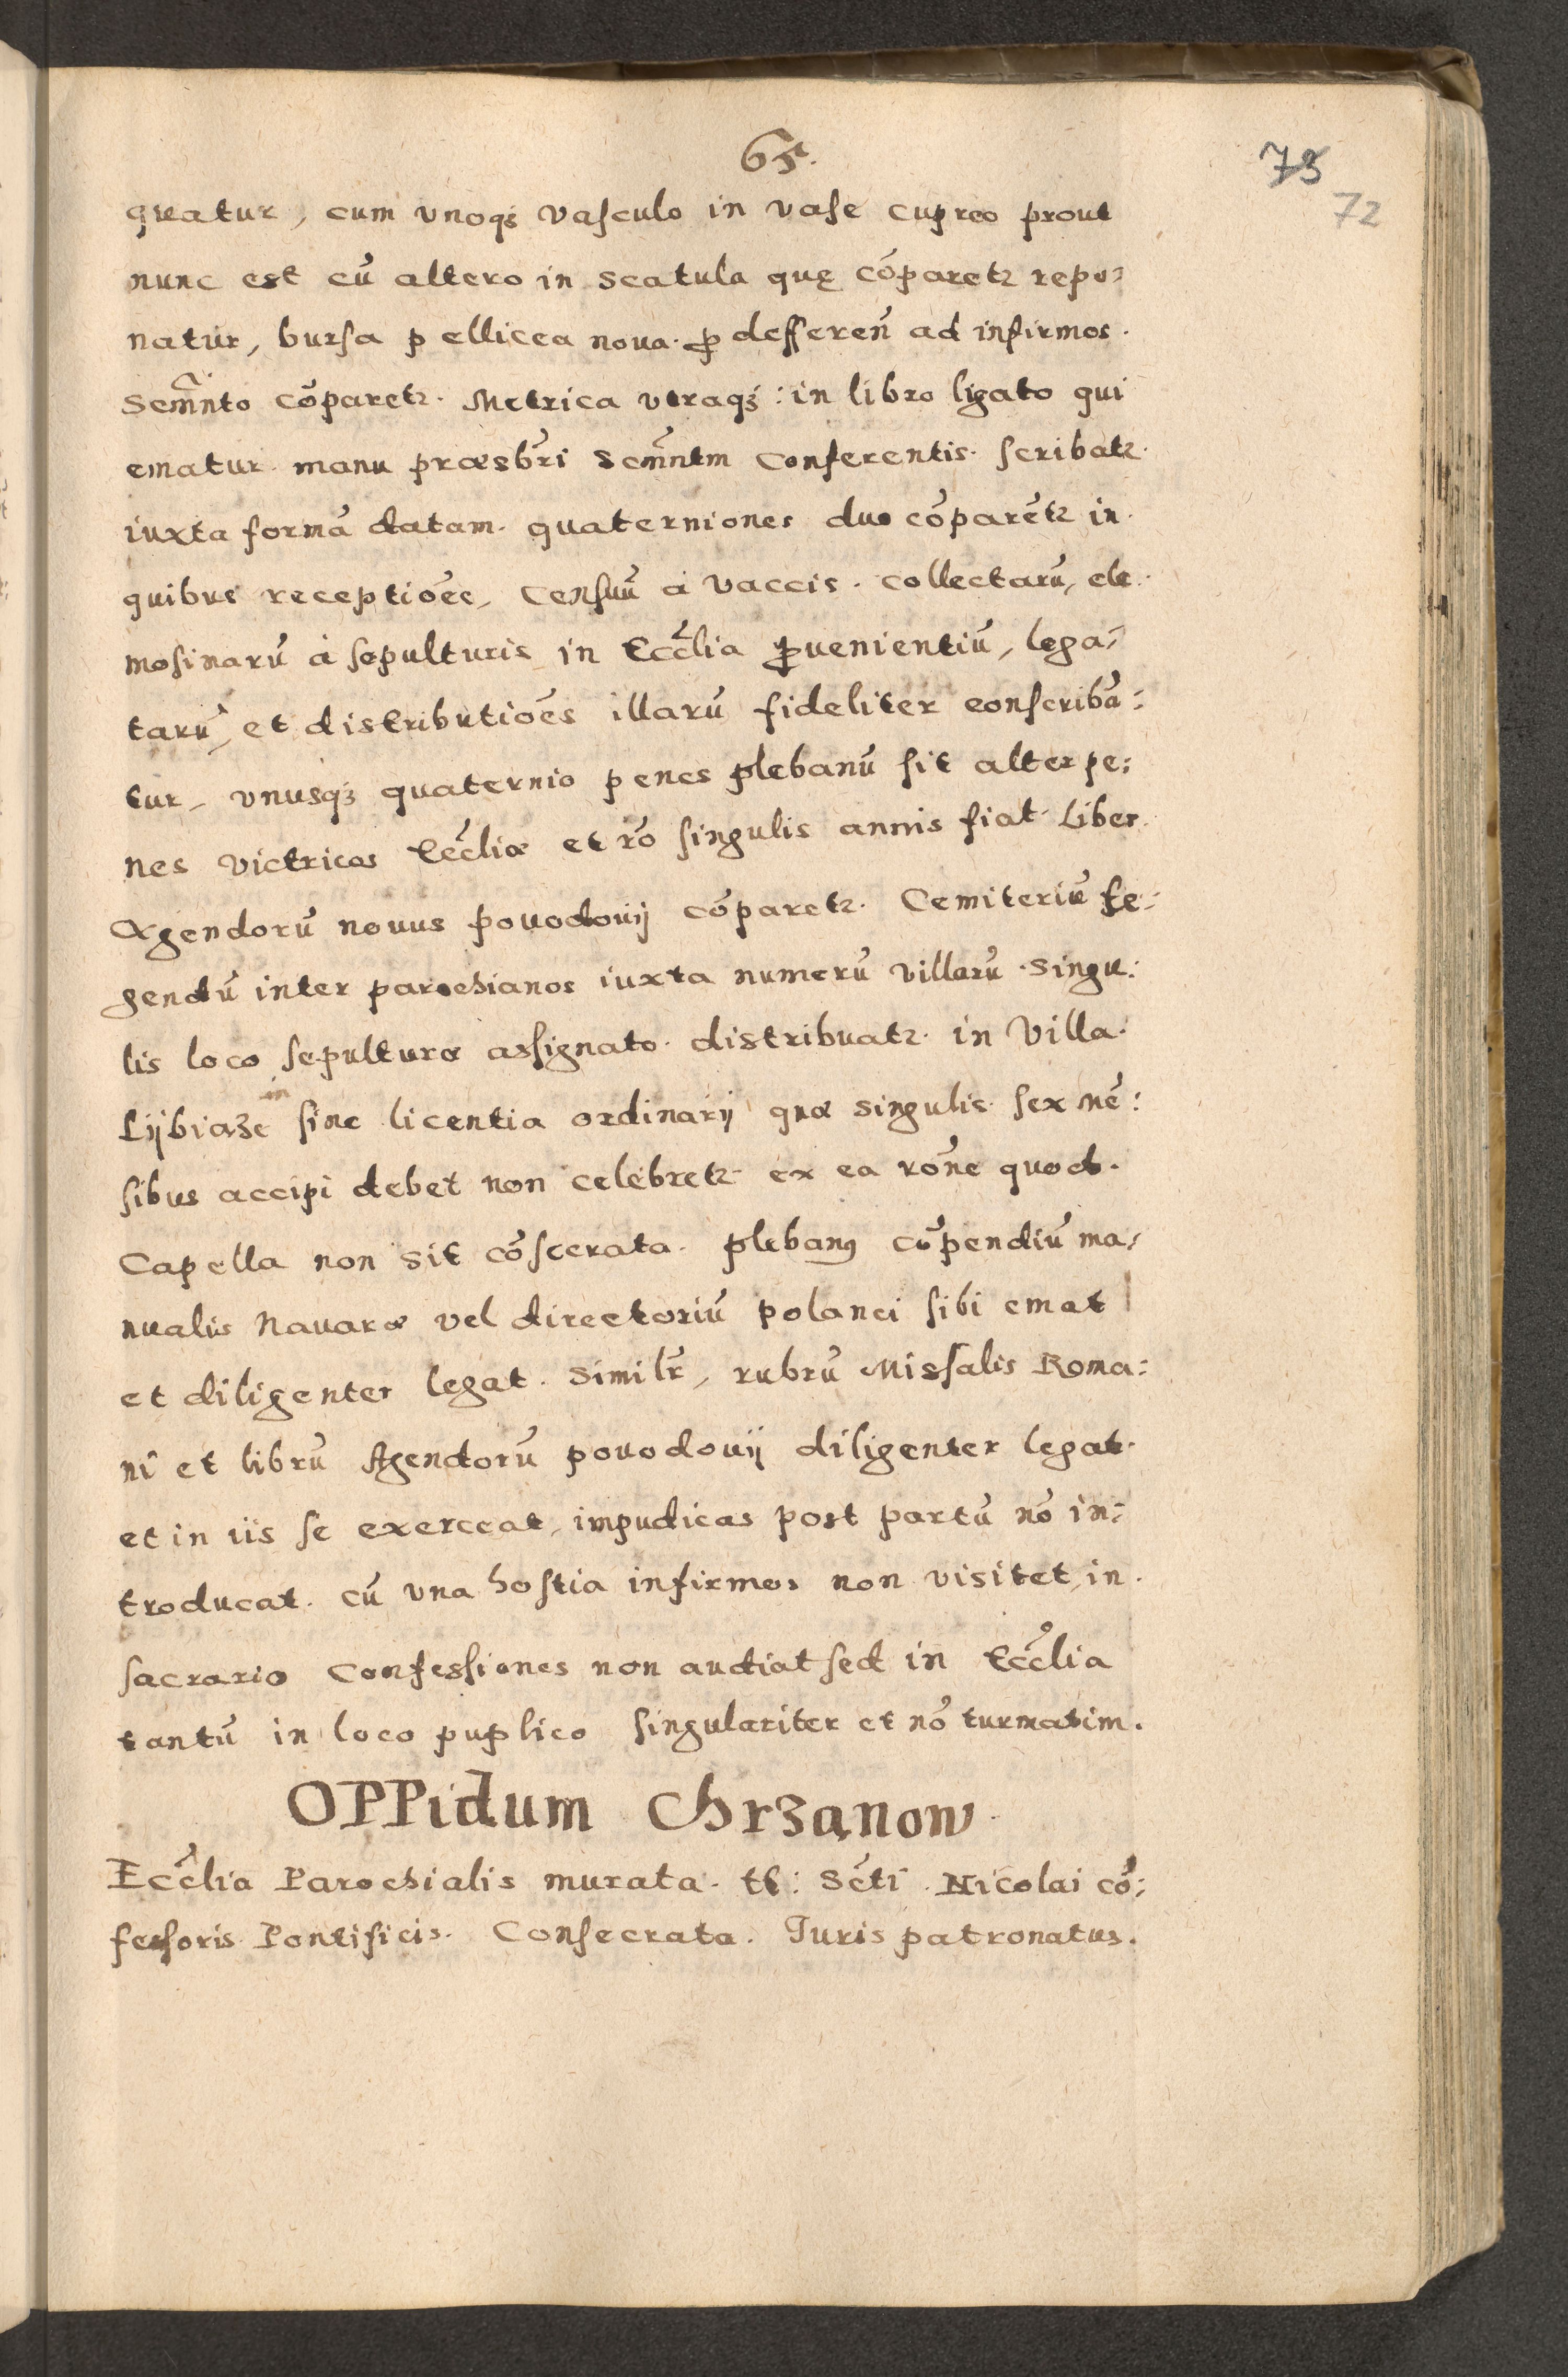 65.
73
72
quatur, cum vnoqꝫ vasculo in vase cupreo prout
nunc est cū altero in scatula quę cōparetꝛ repo⸗
natur, bursa pellicea noua ꝓ defferen̄ ad infirmos.
Scm̄nto cōparetꝛ. Metrica vtraqꝫ: in libro ligato qui
ematur manu præsbr̄i Scm̄ntm conferentis. scribatꝛ.
iuxta formā datam. quaterniones duo cōparēntꝛ in
quibus receptiōēs, censuū à vaccis. collectarū, ele
mosinarū à sepulturis in Eccl̄ia ꝓuenientiū, lega⸗
tarū, et distributiōēs illarū fideliter conscribā:
tur, vnusqꝫ quaternio penes plebanū sit alter pe:
nes victricos Eccl̄iæ et rō singulis annis fiat. Liber
Agendorū nouus pouodouij cōparetꝛ. Cemiteriū te⸗
gendū inter parochianos iuxta numerū villarū singu:
lis loco sepulturæ assignato distribuatꝛ. in Villa.
Lijbiąze in sine licentia ordinarij quæ singulis sex mē:
sibus accipi debet non celebretꝛ ex ea rōne quod.
Capella non sit cōscerata. plebanꝰ cōpendiū ma⸗
nualis Nauaræ vel directoriū polanci sibi emat
et diligenter legat. Similr̄, rubrū Missalis Roma:
ni et librū Agendorū pouodouij diligenter legat.
et in iis se exerceat, impudicas post partū nō in:
troducat. cū vna hostia infirmos non visitet, in.
sacrario Confessiones non audiat sed in Eccl̄ia
tantū in loco puplico singulariter et nō turmatim.
OPPidum Chrzanow.
Eccl̄ia Parochialis murata. tt: Scti Nicolai cō:
fessoris Pontificis. Consecrata. Juris patronatus.